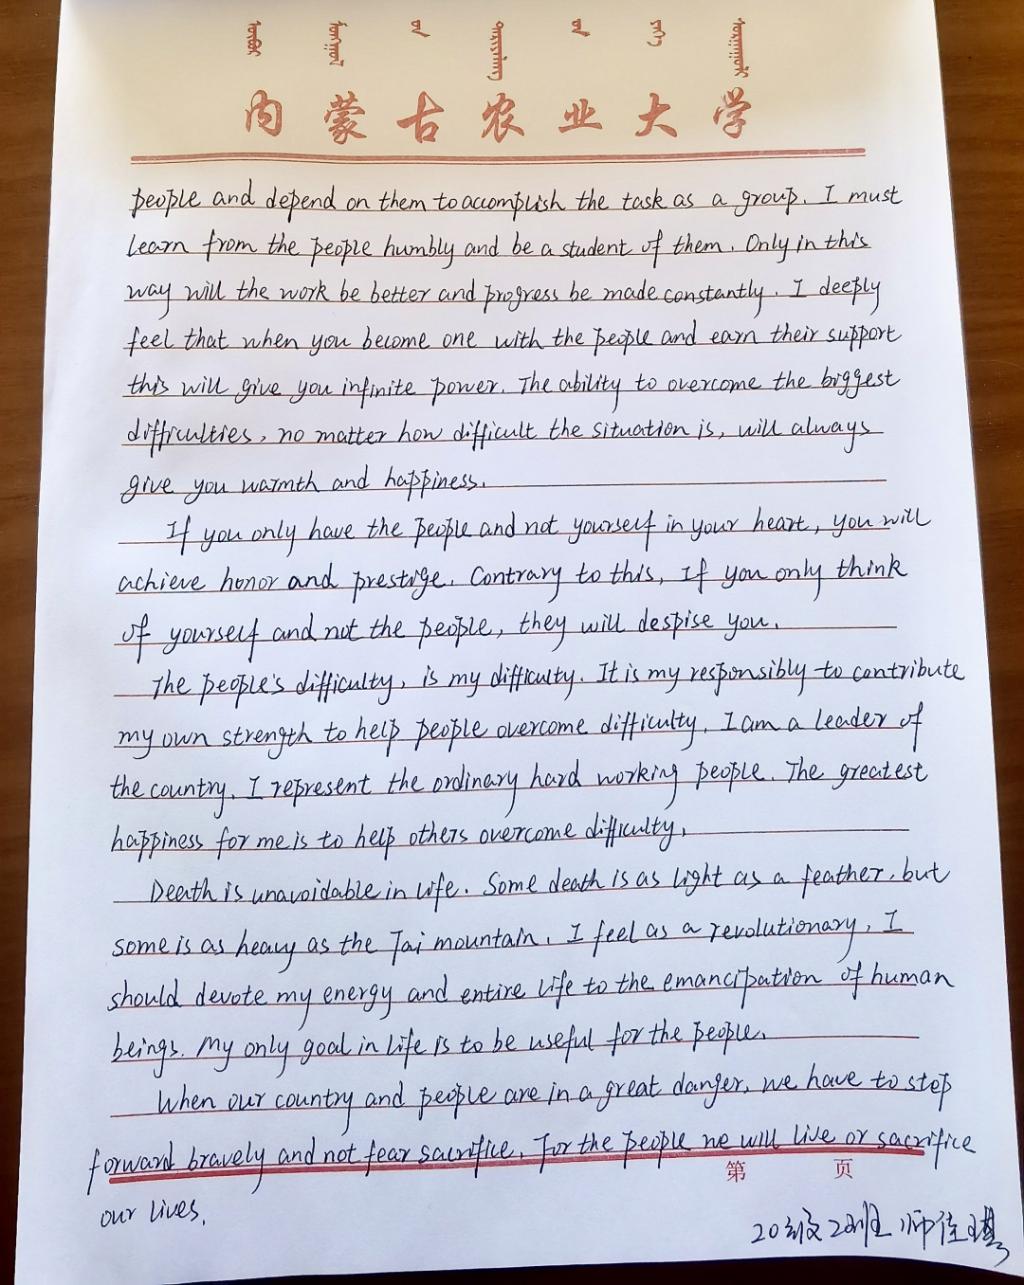 内蒙古农业大学
people and depend on them to accomplish the task as a group. I must
learn from the people humbly and be a student of them. Only in this
way will the work be better and progress be made constantly. I deeply
feel that when you become one with the people and earn their support
this will give you infinite power. The ability to overcome the biggest
difficulties, no matter how difficult the situation is, will always
give you warmth and happiness.
If you only have the people and not yourself in your heart, you will
achieve honor and prestige. Contrary to this, If you only think
of yourself and not the people, they will despise you.
The people's difficulty, is my difficulty. It is my responsibly to contribute
my own strength to help people overcome difficulty. I am a leader of
the country, I represent the ordinary hard working people. The greatest
happiness for me is to help others overcome difficulty.
Death is unavoidable in life. Some death is as light as a feather, but
some is as heavy as the Tai mountain. I feel as a revolutionary, I
should devote my energy and entire life to the emancipation of human
beings. My only goal in life is to be useful for the people.
When our country and people are in a great danger, we have to step
forward bravely and not fear sacrifice. For the people we will live or sacrifice
第 页
our lives.
20级2班 师佳